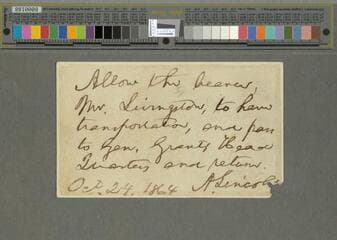 Allow the bearer,
Mr. Livingston, to have
transportation, and pass
to Gen. Grants Head
Quarters and return.
Oct. 24. 1864 A. Lincoln